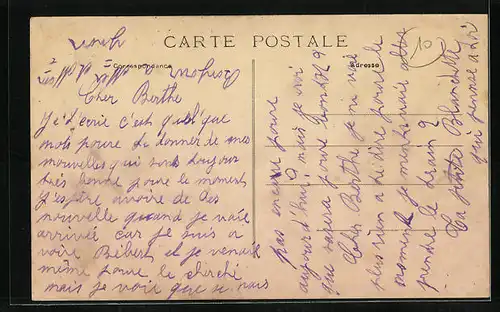 CARTE POSTALE
Correspondance
Adresse
Cher Berthe
Je t'écrie c'est quelque
mots pour te donner de mes
nouvelles qui sont toujour
très bonne pour le moment
J'espère avoire de tes
nouvelle quand je vais
arrivée car je suis a
voire Bébert et je venait
même pour le cherché
mais je vois que se nais
pas encore pour
aujourd'hui mais je voi
que sa sera pour
Cher Berthe je ne voie
plus rien a te dire pour le
moment je me tient nais allée
prendre le train
Ta petite Blanchette
qui pense a toi